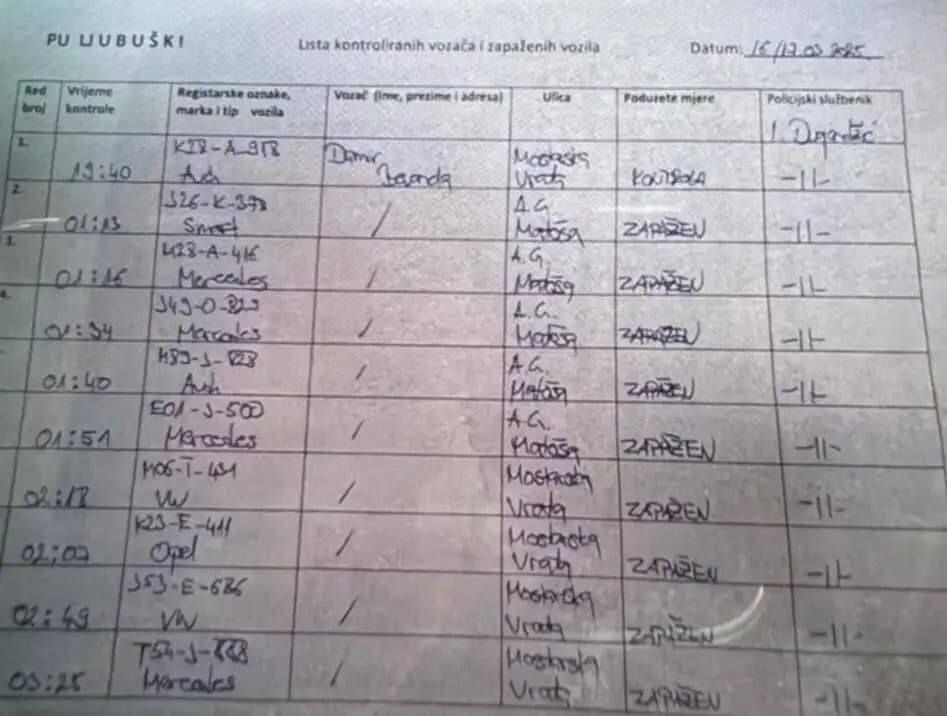 PU LJUBUŠKI
Lista kontroliranih vozača i zapaženih vozila
Datum: 16/17.03 2025
Red broj
Vrijeme kontrole
Registarske oznake, marka i tip vozila
Vozač (ime, prezime i adresa)
Ulica
Poduzete mjere
Policijski službenik
1.
19:40
Audi
Damir Bevanda
Mostarska Vrata
KONTROLA
-||-
2.
01:13
J26-K-378
Smart
/
A.G. Matoša
ZAPAŽEN
-||-
3.
01:16
M28-A-416
Mercedes
/
A.G. Matoša
ZAPAŽEN
-||-
4.
01:34
J49-O-829
Mercedes
/
A.G. Matoša
ZAPAŽEN
-||-
01:40
Audi
/
A.G. Matoša
ZAPAŽEN
-||-
01:51
E01-J-500
Mercedes
/
A.G. Matoša
ZAPAŽEN
-||-
02:18
VW
/
Mostarska Vrata
ZAPAŽEN
-||-
K23-E-411
Opel
/
Mostarska Vrata
ZAPAŽEN
-||-
02:49
J53-E-686
VW
/
Mostarska Vrata
ZAPAŽEN
-||-
03:25
Mercedes
/
Mostarska Vrata
ZAPAŽEN
-||-